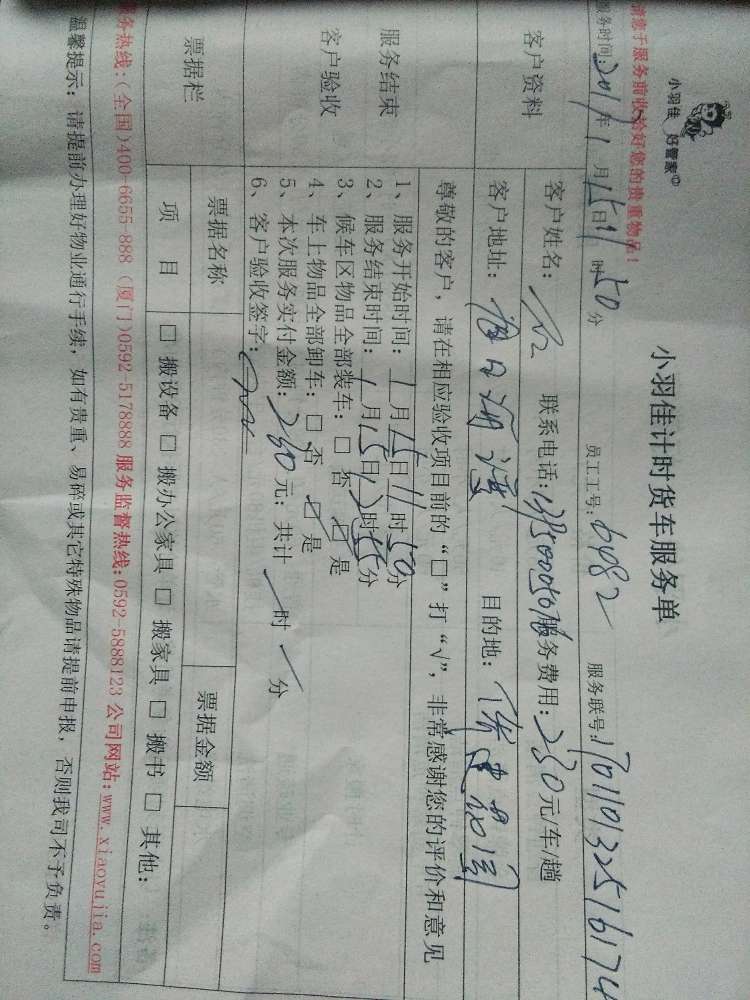 小羽佳 好管家
小羽佳计时货车服务单
请您于服务前收拾好您的贵重物品！
服务时间：2017年1月15日11时50分 员工工号：6982 服务联号：
客户资料
客户姓名： 联系电话： 服务费用：230元/车/趟
客户地址： 目的地：
尊敬的客户，请在相应验收项目前的“□”打“√”，非常感谢您的评价和意见
服务结束
客户验收
1、服务开始时间：1月15日11时50分
2、服务结束时间：1月15日12时55分
3、候车区物品全部装车：□ 否 ☑ 是
4、车上物品全部卸车：□ 否 ☑ 是
5、本次服务实付金额：230元；共计 时 分
6、客户验收签字：
票据栏
票据名称 票据金额
项 目 □ 搬设备 □ 搬办公家具 □ 搬家具 □ 搬书 □ 其他：
服务热线：(全国)400-6655-888 (厦门)0592-5178888 服务监督热线：0592-5888123 公司网站：www.xiaoyujia.com
温馨提示：请提前办理好物业通行手续，如有贵重、易碎或其它特殊物品请提前申报，否则我司不予负责。